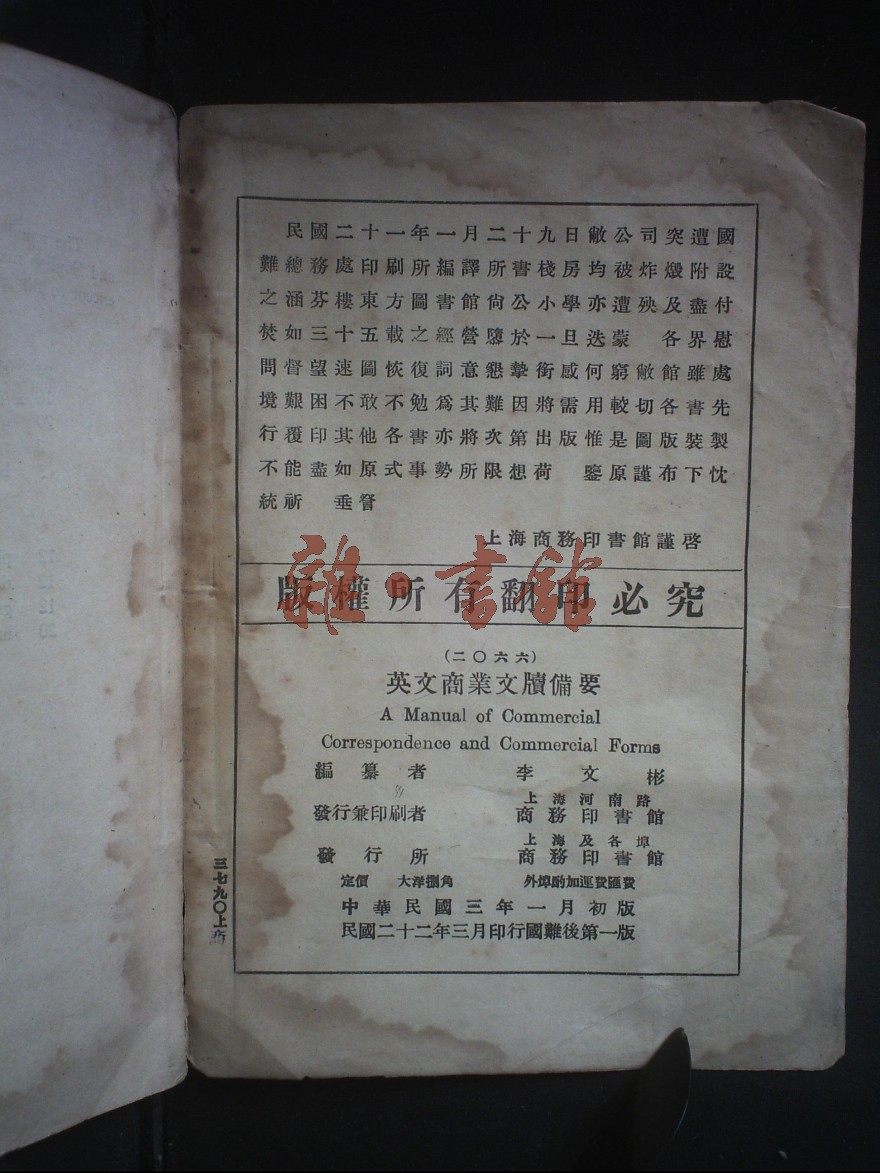 民國二十一年一月二十九日敝公司突遭國
難總務處印刷所編譯所書棧房均被炸燬附設
之涵芬樓東方圖書館尙公小學亦遭殃及盡付
焚如三十五載之經營隳於一旦迭蒙 各界慰
問督望速圖恢復詞意懇摯銜感何窮敝館雖處
境艱困不敢不勉爲其難因將需用較切各書先
行覆印其他各書亦將次第出版惟是圖版裝製
不能盡如原式事勢所限想荷 鑒原謹布下忱
統祈 垂詧
上海商務印書館謹啓
版權所有翻印必究
雜·書館
(二〇六六)
英文商業文牘備要
A Manual of Commercial
Correspondence and Commercial Forms
編纂者 李文彬
上海河南路
發行兼印刷者 商務印書館
上海及各埠
發行所 商務印書館
定價 大洋捌角 外埠酌加運費匯費
中華民國三年一月初版
民國二十二年三月印行國難後第一版
三七九〇上